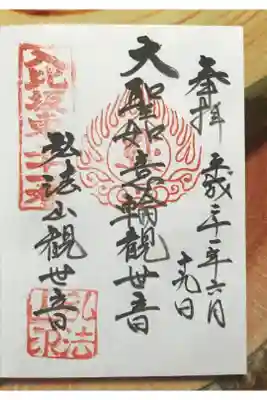 奉拝
平成二十一年六月
十九日
大聖如意輪觀世音
弘法山觀世音